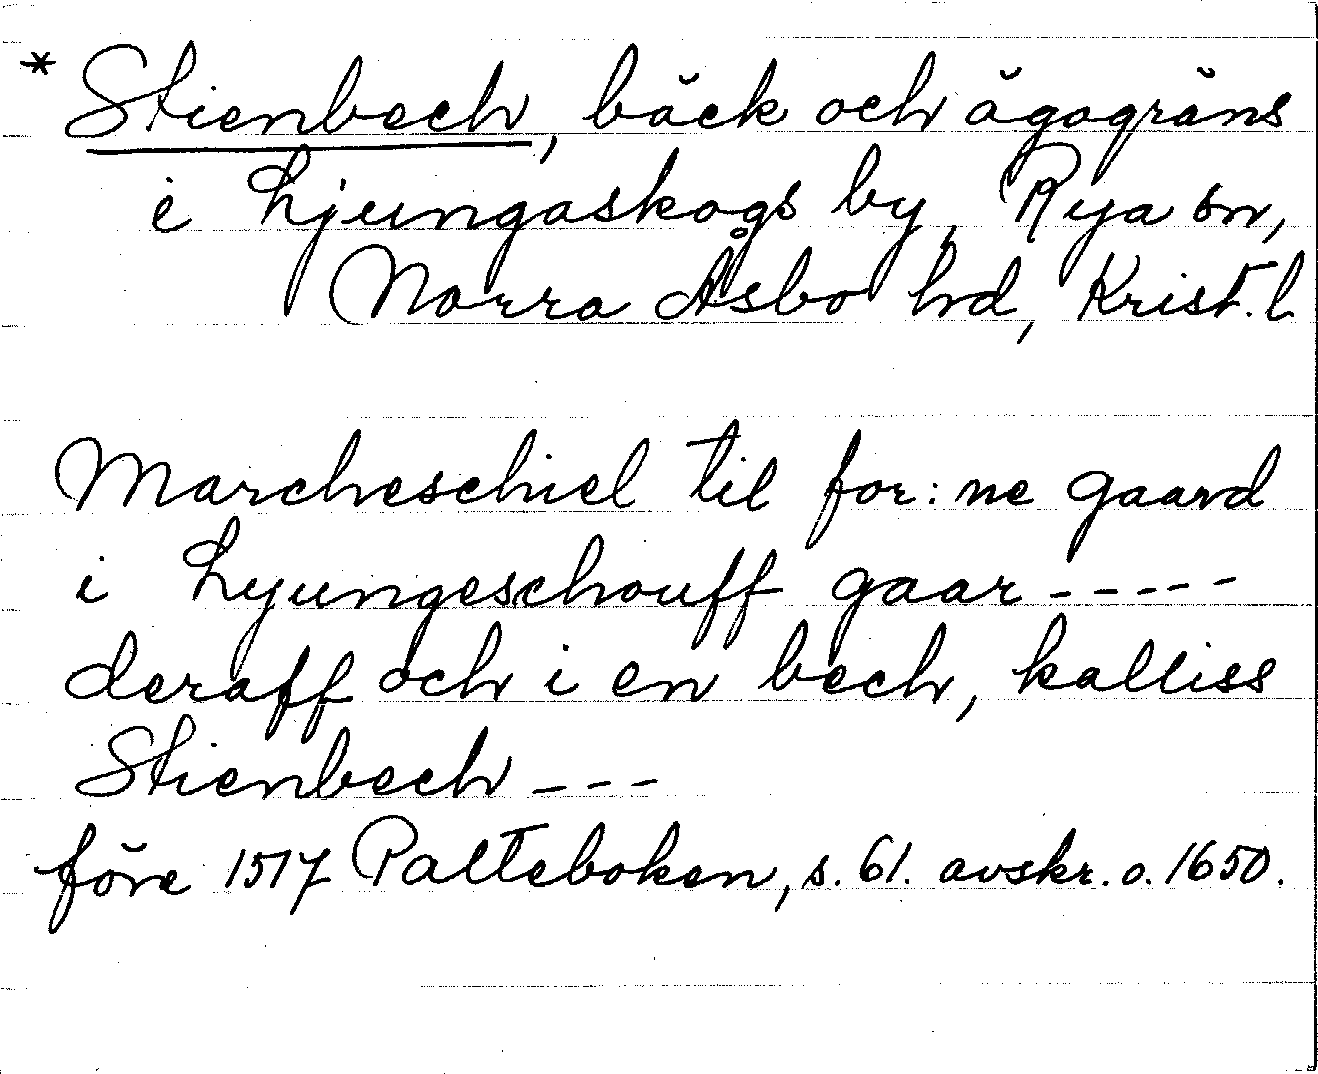 * Stienbech, bäck och ägogräns
i Ljungaskogs by, Rya sn,
Norra Åsbo hd, Krist. l
Marcheschiel til for: ne gaard
i Lyungeschouff gaar - - - -
deraff och i en bech, kalliss
Stienbech - - -
före 1517 Palteboken, s. 61. avskr. o. 1650.